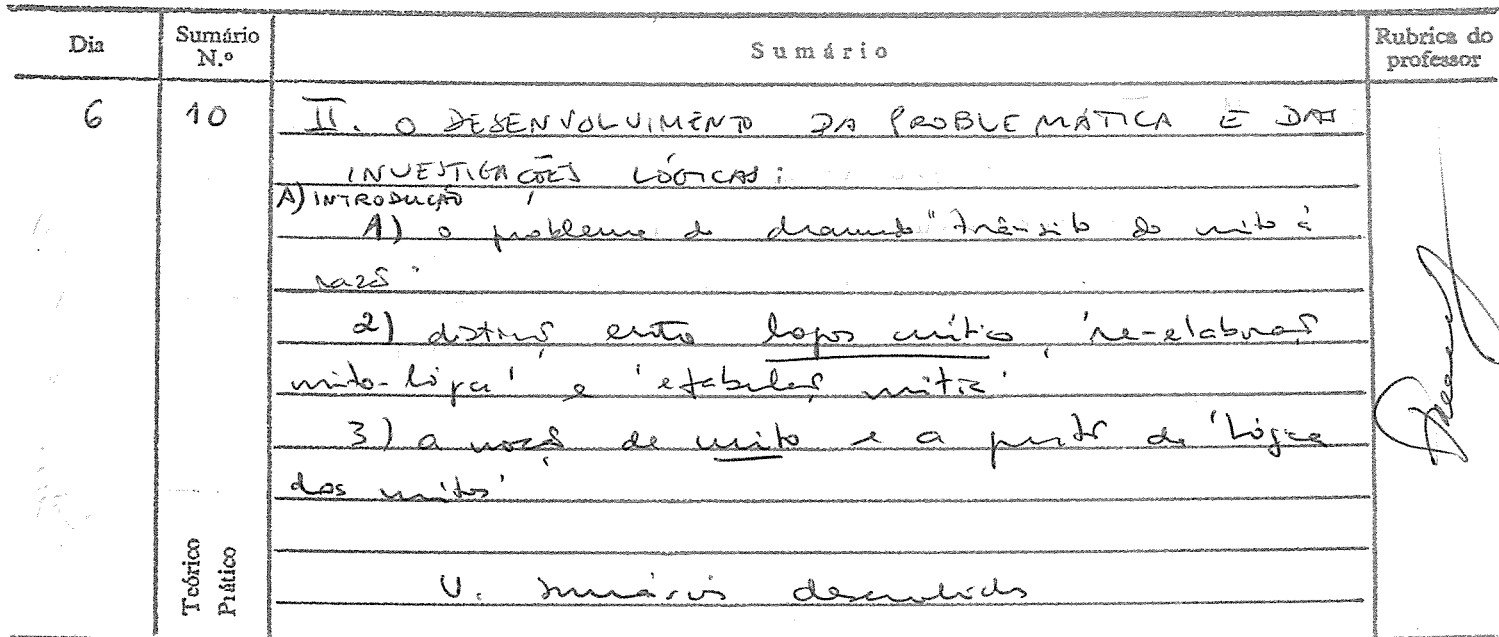 Dia Sumário N.º Sumário Rubrica do professor
6 10 II. O DESENVOLVIMENTO DA PROBLEMÁTICA E DAS
INVESTIGAÇÕES LÓGICAS:
A) INTRODUÇÃO
1) o problema do chamado "trânsito do mito à
razão"
2) distinção entre logos mítico, 're-elaboração
mito-lógica' e 'efabulação mítica'
3) a noção de mito e a questão da 'Lógica
dos mitos'
Teórico Prático
V. Sumários desenvolvidos